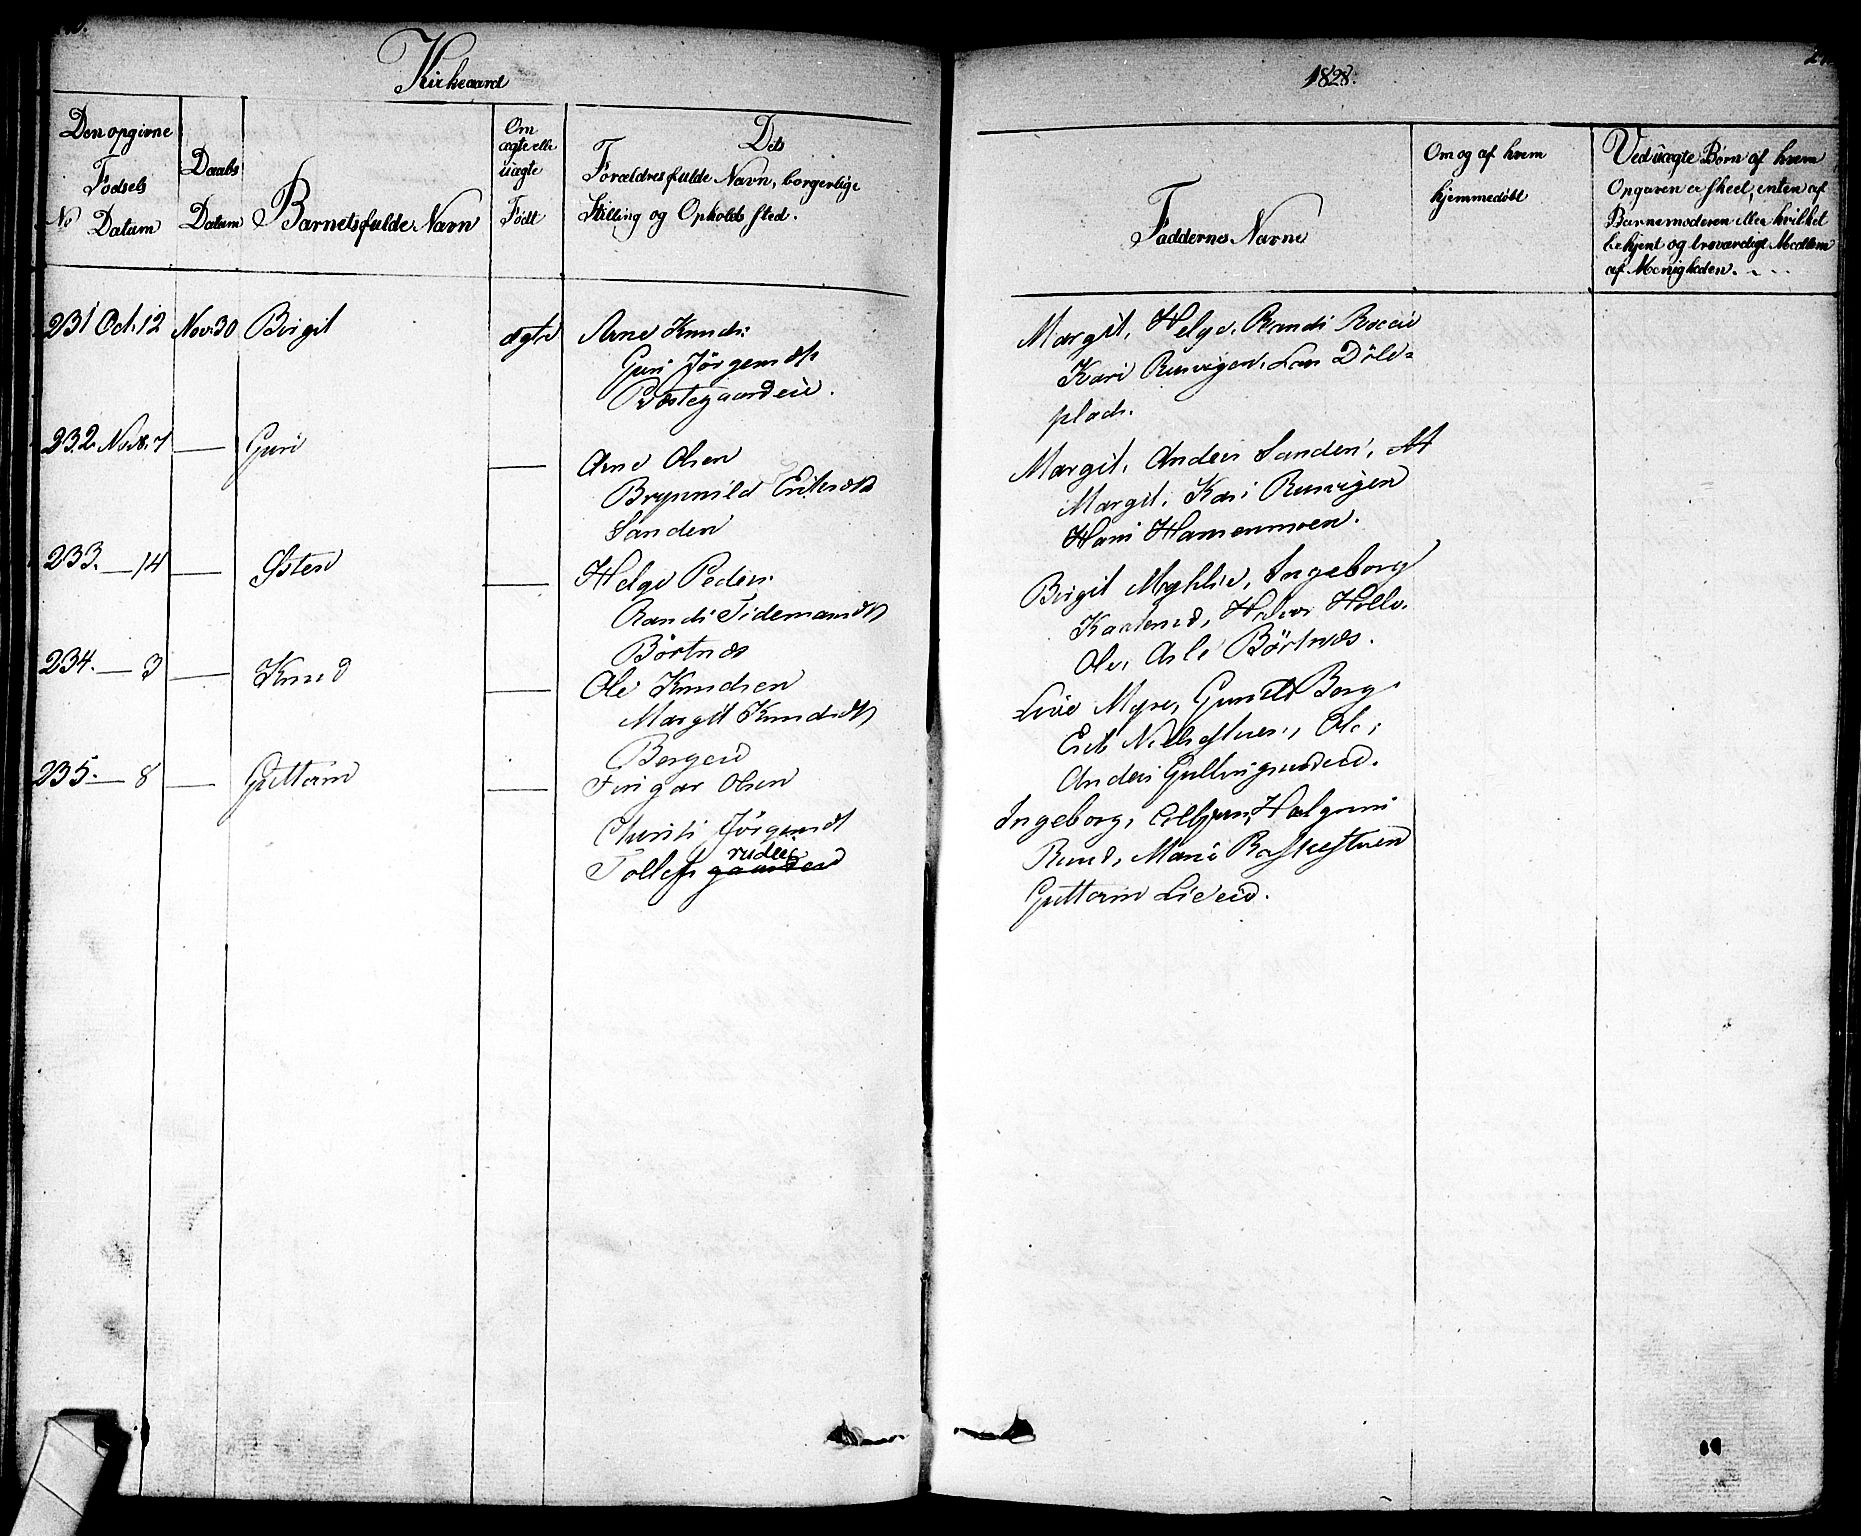 Kirkeaard
1828.
Den opgivne
Fødsels
No Datum
Daabs
Datum
Barnets fulde Navn
Om
ægte elle
uægte
Født
Dets
Forældres fulde Navn, borgerlige
Stilling og Opholds sted.
Faddernes Navne
Om og af hvem
hjemmedøbt
Ved uægte Børn af hvem
Opgaven er skeet, enten af
Barnemoderen eller hvilket
bekjent og troværdigt Medlem
af Menigheden.
231 Oct. 12 Nov. 30 Birgit ægte Arne Knuds:
Guri Jørgensdt
Præstegaardeie.
Margit, Helge, Randi
Kari Lars Døle-
plads.
232. Novb. 7 — Guri — Arne Olsen
Brynnild Eriksdt
Sanden
Margit, Anders Sanden,
Margit, Kari
Hans Hansenmoen.
233. — 14 — Østen — Helge Peders.
Randi Tidemansdt
Börtnæs
Birgit Myhlie, Ingeborg
Ole, Asle Börtnæs.
234. — 3 — Knud — Ole Knudsen
Margit Knudsdt
Bergeie
Live Myre, Berg
Ole,
Anders Gullingsrudeie.
235. — 8 — Guttorm — Fingar Olsen
Christi Jörgensdt
rudeie
Tollefs gaardeie
Ingeborg, Halgrim
Ruud, Mari
Guttorm Lieeie.